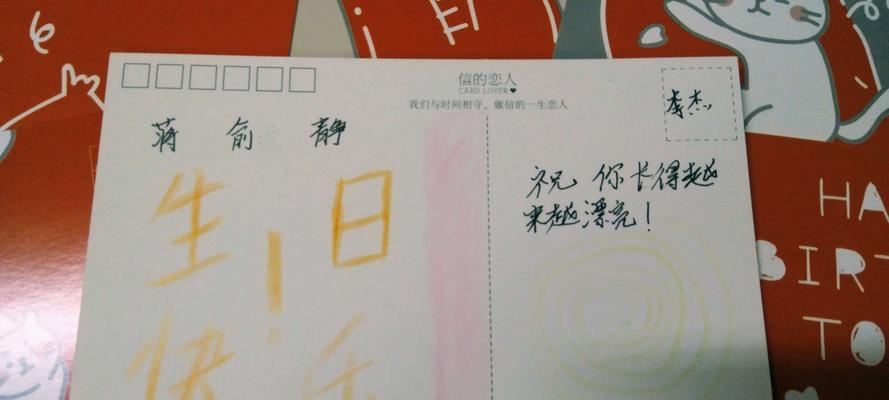 信的恋人
CARD LOVER
我们与时间相守，做信的一生恋人
李杰
蒋俞静
生日
快乐!
祝你长得越
来越漂亮!
HA
BIRT
TO